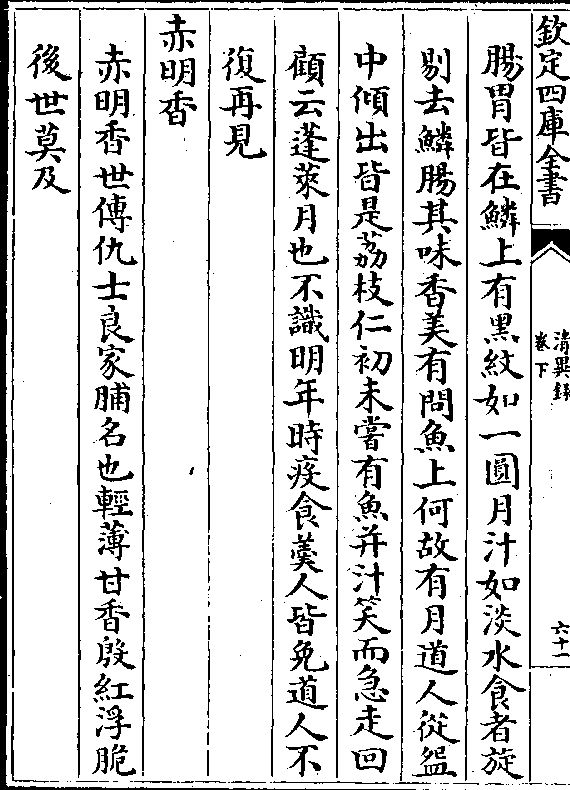 欽定四庫全書
清異錄
卷下
六十一
腸胃皆在鱗上有黑紋如一圓月汁如淡水食者旋
剔去鱗腸其味香美有問魚上何故有月道人從盌
中傾出皆是荔枝仁初未嘗有魚并汁笑而急走回
顧云蓬萊月也不識明年時疫食羹人皆免道人不
復再見
赤明香
赤明香世傳仇士良家脯名也輕薄甘香殷紅浮脆
後世莫及